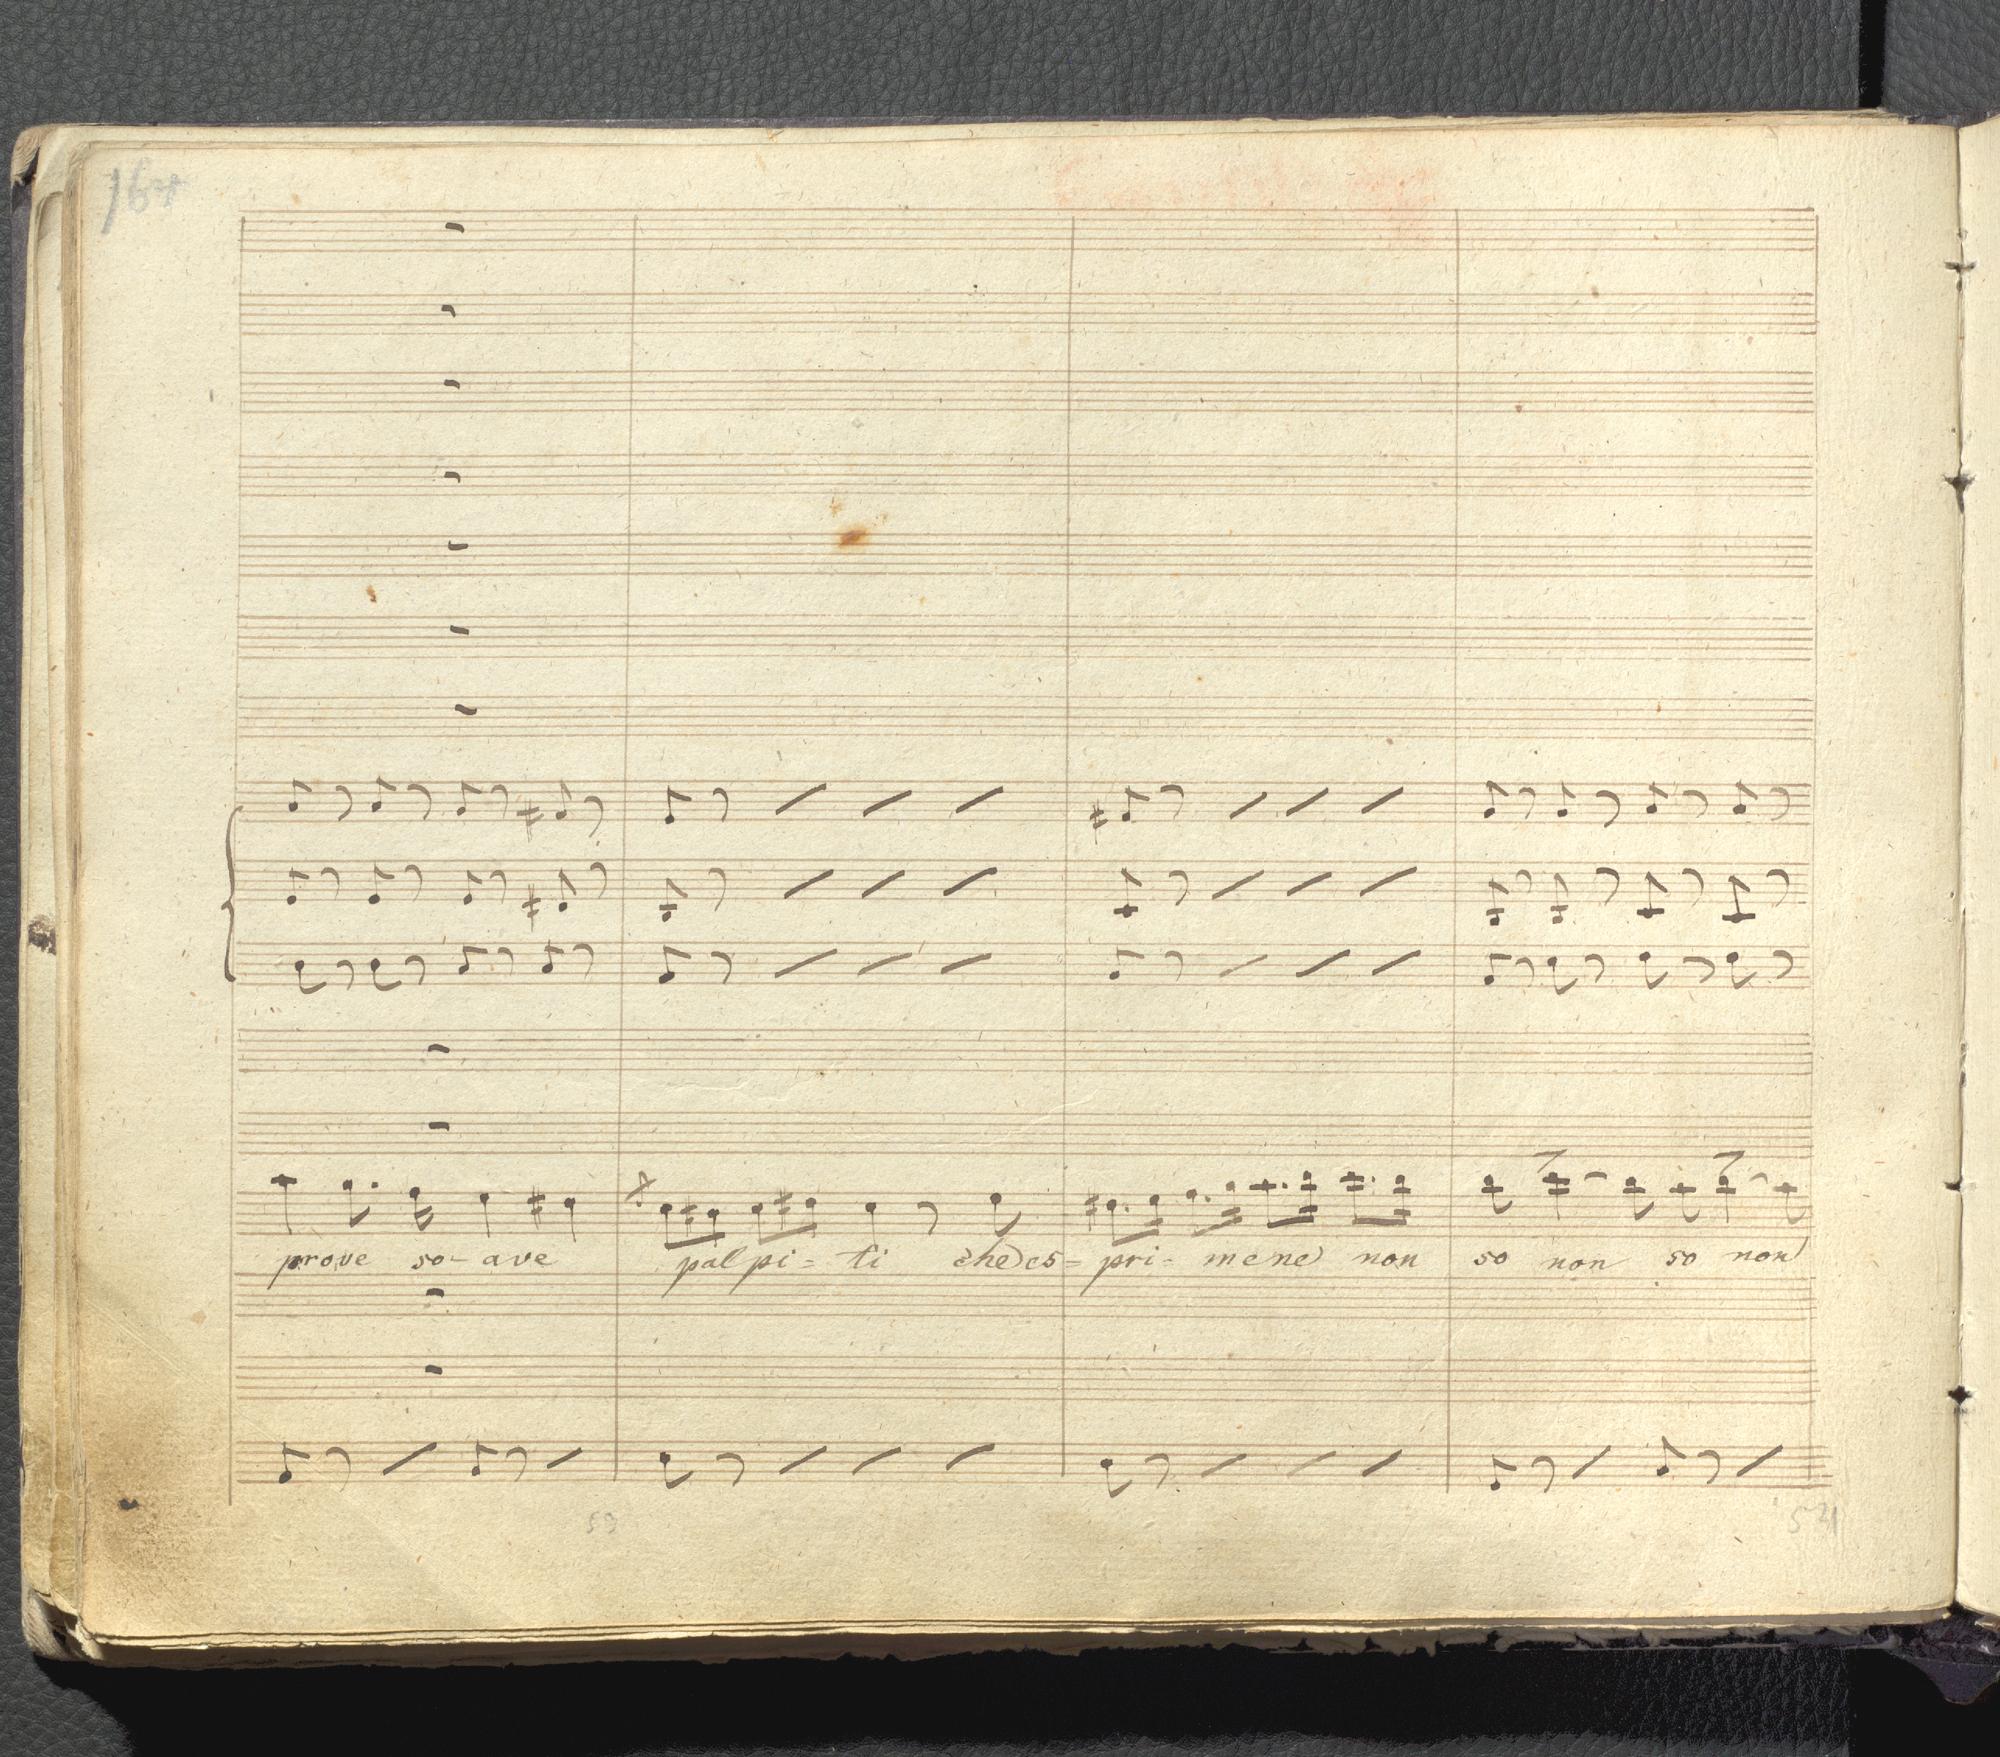 164
prove so- ave palpi= ti che es= pri= mene non so non so non
53
54